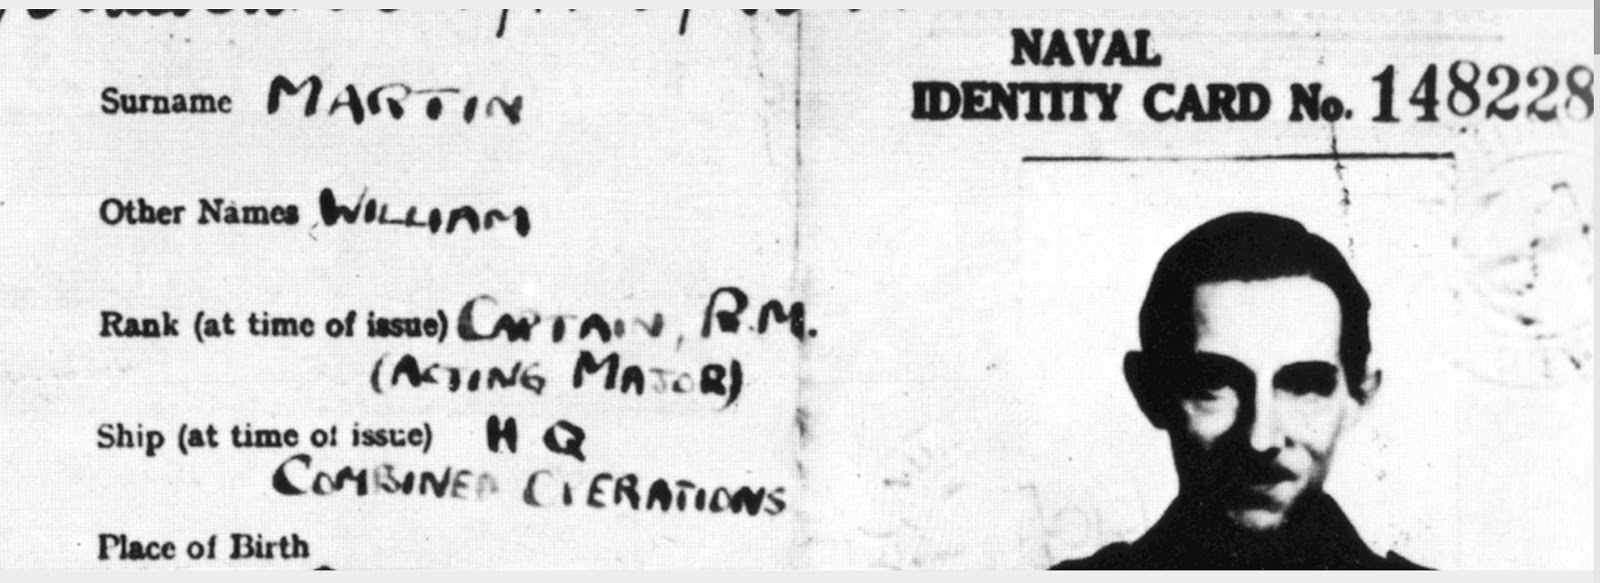 Surname MARTIN
Other Names WILLIAM
Rank (at time of issue) CAPTAIN, R.M.
(ACTING MAJOR)
Ship (at time of issue) H Q
COMBINED OPERATIONS
Place of Birth
NAVAL
IDENTITY CARD No. 148228